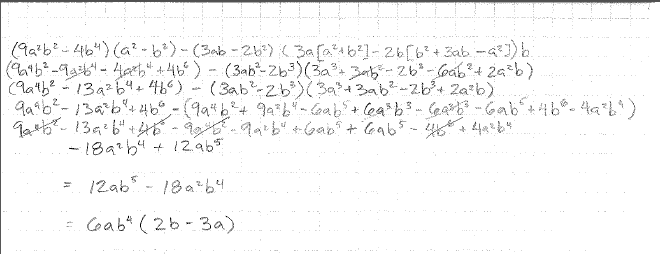 (9a²b² - 4b⁴)(a² - b²) - (3ab - 2b²)(3a[a²+b²] - 2b[b² + 3ab - a²])b
(9a⁴b² - 9a²b⁴ - 4a²b⁴ + 4b⁶) - (3ab² - 2b³)(3a³ + 3ab² - 2b³ - 6ab² + 2a²b)
(9a⁴b² - 13a²b⁴ + 4b⁶) - (3ab² - 2b³)(3a³ + 3ab² - 2b³ + 2a²b)
9a⁴b² - 13a²b⁴ + 4b⁶ - (9a⁴b² + 9a²b⁴ - 6ab⁵ + 6a³b³ - 6a³b³ - 6ab⁵ + 4b⁶ - 4a²b⁴)
9a⁴b² - 13a²b⁴ + 4b⁶ - 9a⁴b² - 9a²b⁴ + 6ab⁵ + 6ab⁵ - 4b⁶ + 4a²b⁴
- 18a²b⁴ + 12ab⁵
= 12ab⁵ - 18a²b⁴
= 6ab⁴ (2b - 3a)